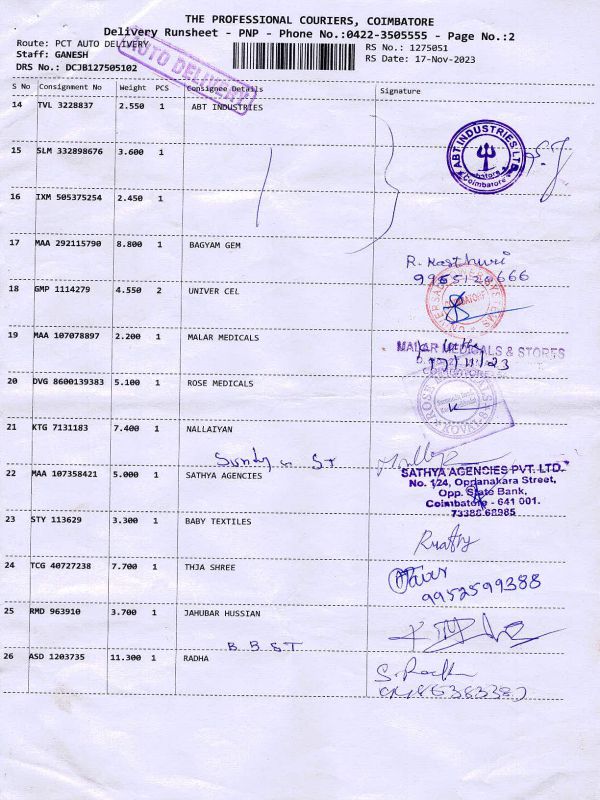 THE PROFESSIONAL COURIERS, COIMBATORE
Delivery Runsheet - PNP - Phone No.:0422-3505555 - Page No.:2
Route: PCT AUTO DELIVERY
RS No.: 1275051
Staff: GANESH
RS Date: 17-Nov-2023
DRS No.: DCJB127505102
AUTO DELIVERY
S No Consignment No Weight PCS Consignee Details Signature
14 TVL 3228837 2.550 1 ABT INDUSTRIES
ABT INDUSTRIES LTD
Coimbatore
15 SLM 332898676 3.600 1
16 IXM 505375254 2.450 1
17 MAA 292115790 8.800 1 BAGYAM GEM
R. Kasthuri
9965120666
18 GMP 1114279 4.550 2 UNIVER CEL
19 MAA 107078897 2.200 1 MALAR MEDICALS
MALAR MEDICALS & STORES
17/11/23
COIMBATORE
20 DVG 8600139383 5.100 1 ROSE MEDICALS
ROSE MEDICALS
21 KTG 7131183 7.400 1 NALLAIYAN
22 MAA 107358421 5.000 1 SATHYA AGENCIES
SATHYA AGENCIES PVT. LTD.
No. 124, Oppanakara Street,
Opp. State Bank,
Coimbatore - 641 001.
73388 68985
23 STY 113629 3.300 1 BABY TEXTILES
24 TCG 40727238 7.700 1 THJA SHREE
9952599388
25 RMD 963910 3.700 1 JAHUBAR HUSSIAN
B. B. ST
26 ASD 1203735 11.300 1 RADHA
S. Radha